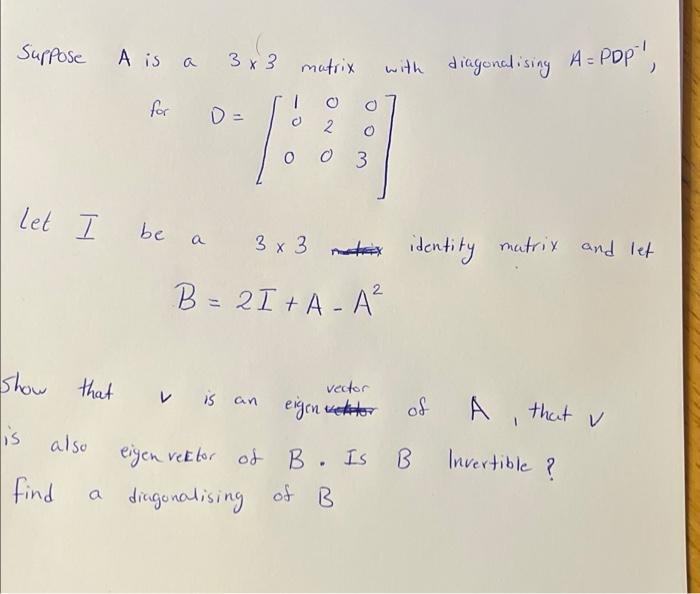 Suppose A is a 3 x 3 matrix with diagonalising A = PDP⁻¹,
for D = [ 1 0 0
0 2 0
0 0 3 ]
Let I be a 3 x 3 identity matrix and let
B = 2I + A - A²
Show that v is an eigen vector of A, that v
is also eigen vector of B. Is B Invertible ?
find a diagonalising of B